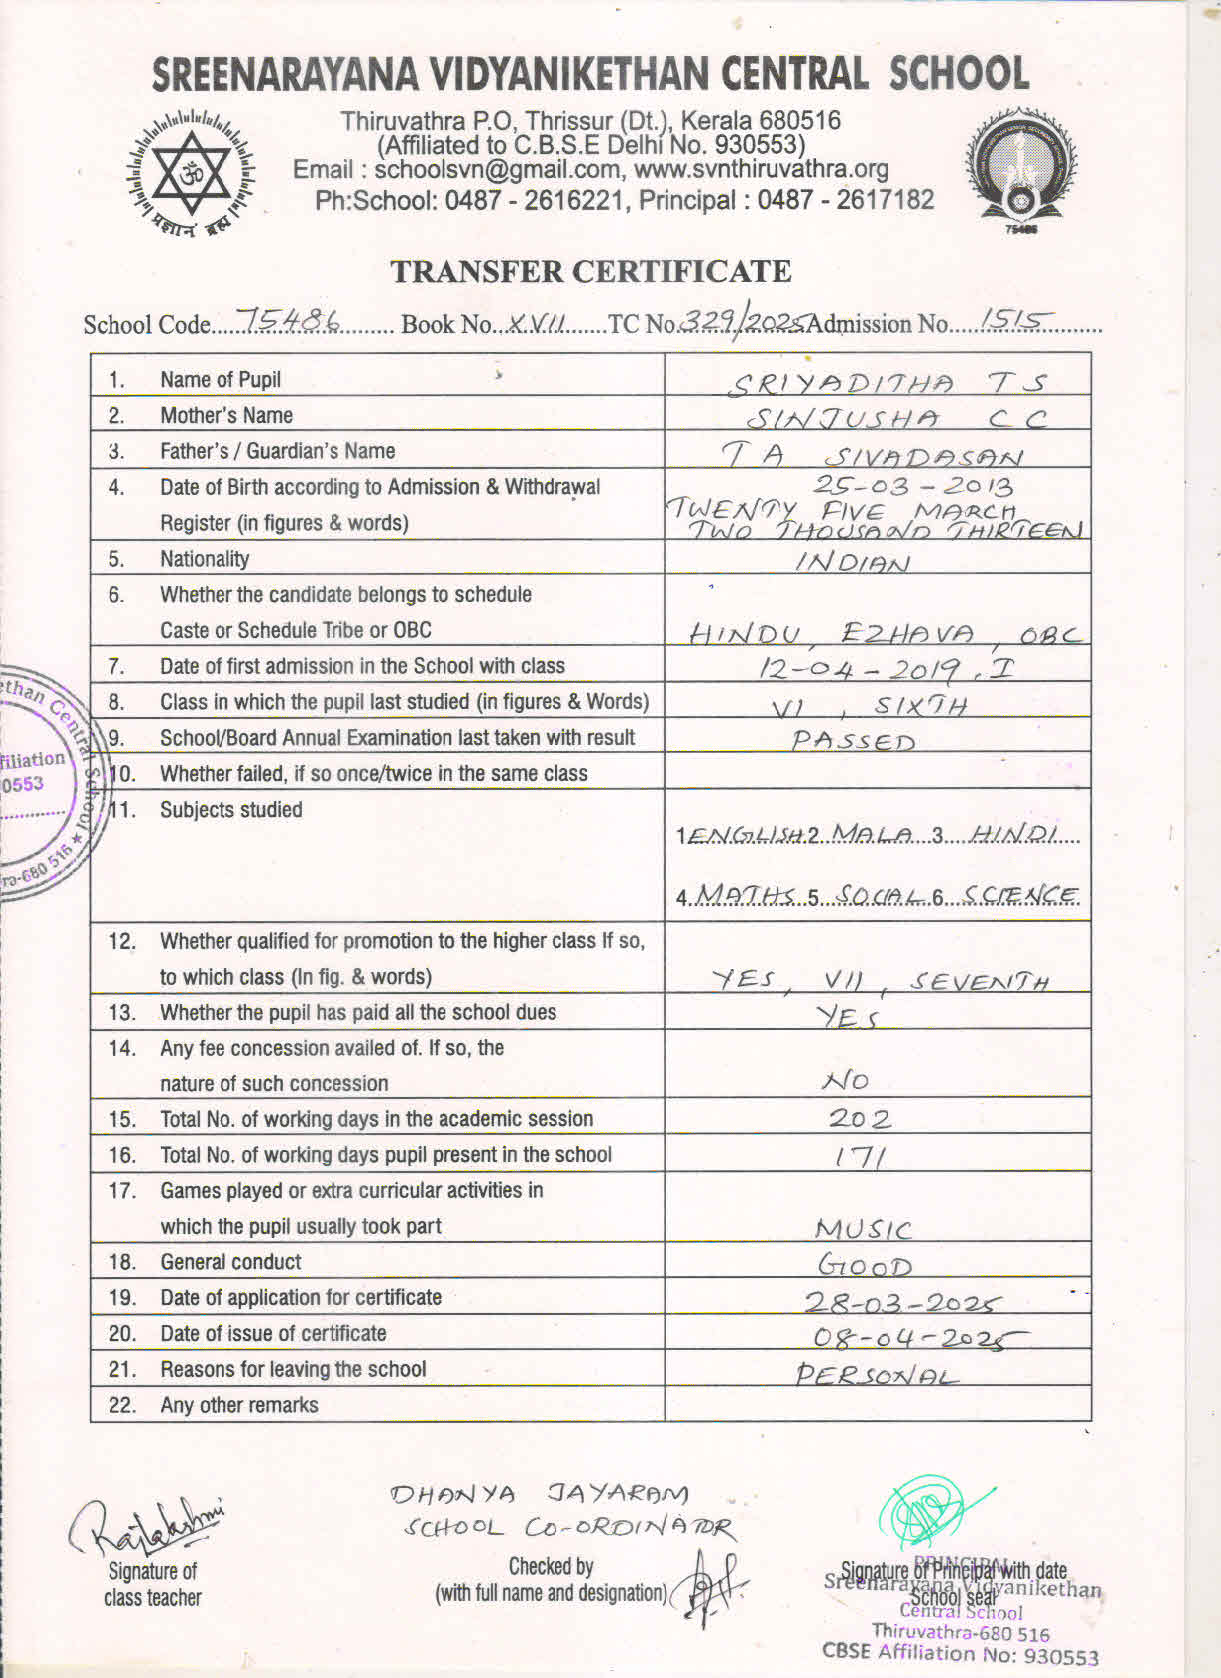 SREENARAYANA VIDYANIKETHAN CENTRAL SCHOOL
Thiruvathra P.O, Thrissur (Dt.), Kerala 680516
(Affiliated to C.B.S.E Delhi No. 930553)
Email : schoolsvn@gmail.com, www.svnthiruvathra.org
Ph:School: 0487 - 2616221, Principal : 0487 - 2617182
प्रज्ञानं ब्रह्म
75486
TRANSFER CERTIFICATE
School Code.....75486......... Book No..XVII.......TC No.329/2025Admission No.....1515..........
1. Name of Pupil SRIYADITHA T S
2. Mother's Name SINJUSHA C C
3. Father's / Guardian's Name T A SIVADASAN
4. Date of Birth according to Admission & Withdrawal 25-03-2013
Register (in figures & words) TWENTY FIVE MARCH
TWO THOUSAND THIRTEEN
5. Nationality INDIAN
6. Whether the candidate belongs to schedule
Caste or Schedule Tribe or OBC HINDU, EZHAVA, OBC
7. Date of first admission in the School with class 12-04-2019, I
8. Class in which the pupil last studied (in figures & Words) VI, SIXTH
9. School/Board Annual Examination last taken with result PASSED
10. Whether failed, if so once/twice in the same class
11. Subjects studied
1 ENGLISH 2..MALA...3....HINDI....
4.MATHS..5...SOCIAL.6...SCIENCE.
12. Whether qualified for promotion to the higher class If so,
to which class (In fig. & words) YES, VII, SEVENTH
13. Whether the pupil has paid all the school dues YES
14. Any fee concession availed of. If so, the
nature of such concession NO
15. Total No. of working days in the academic session 202
16. Total No. of working days pupil present in the school 171
17. Games played or extra curricular activities in
which the pupil usually took part MUSIC
18. General conduct GOOD
19. Date of application for certificate 28-03-2025
20. Date of issue of certificate 08-04-2025
21. Reasons for leaving the school PERSONAL
22. Any other remarks
kethan Central School ★
filiation
0553
ra-680 516
Rajalakshmi
Signature of
class teacher
DHANYA JAYARAM
SCHOOL CO-ORDINATOR
Checked by
(with full name and designation)
Signature of Principal with date
School seal
PRINCIPAL
Sreenarayana Vidyanikethan
Central School
Thiruvathra-680 516
CBSE Affiliation No: 930553